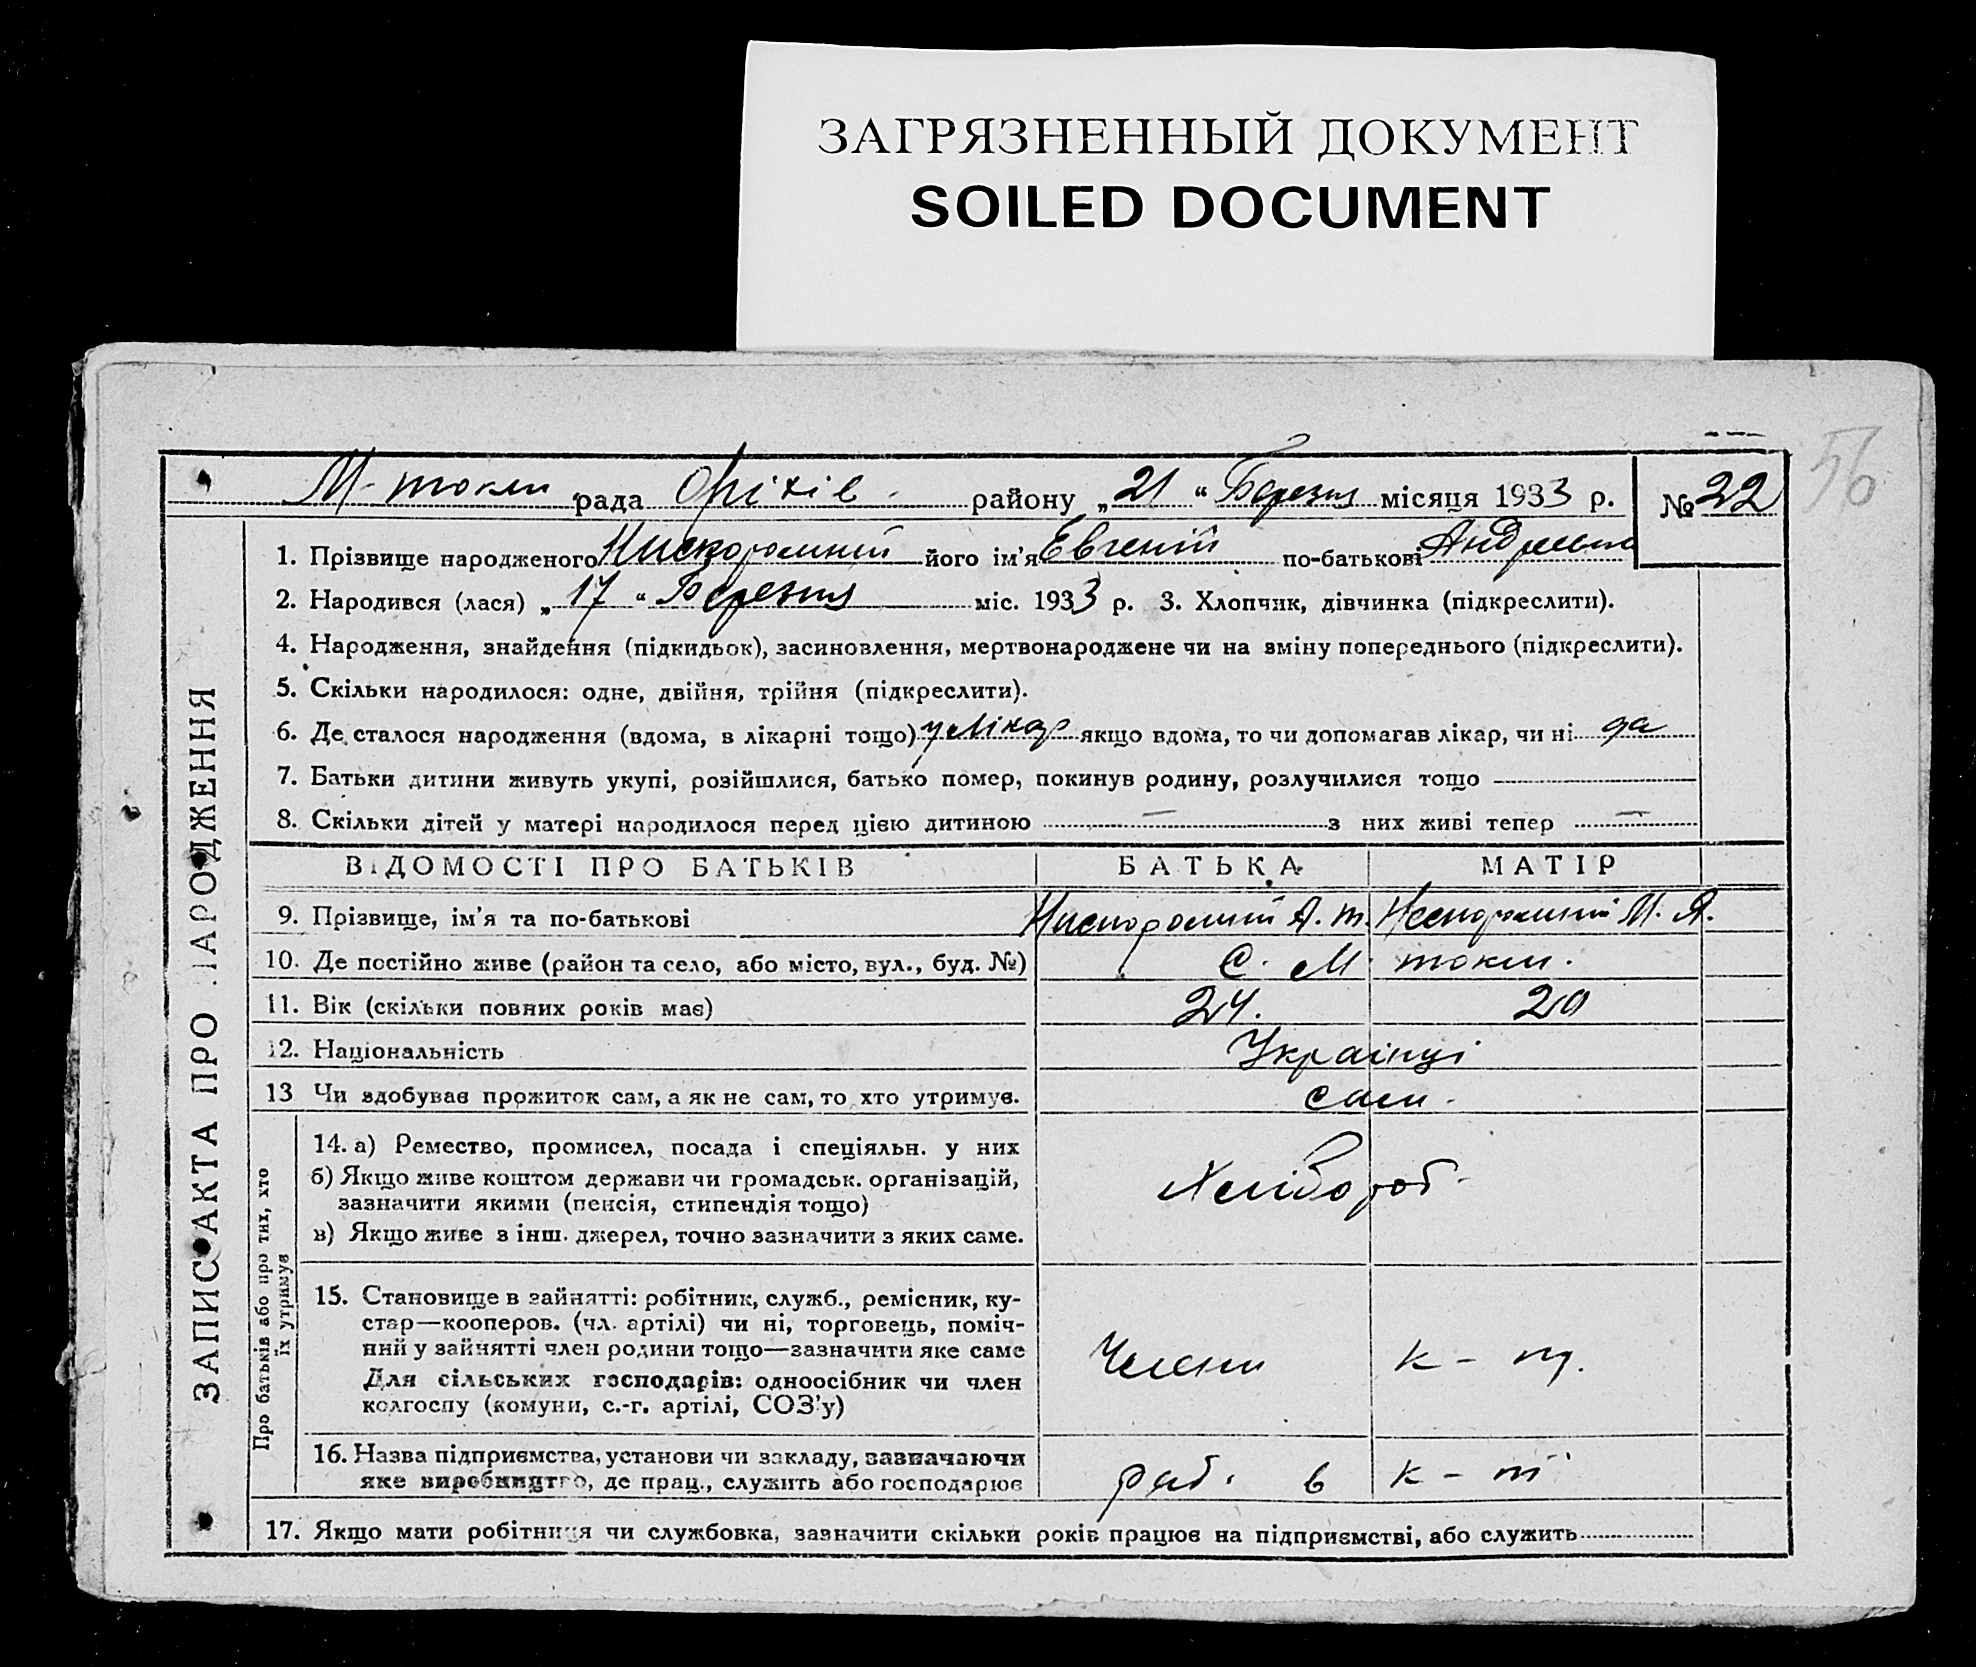 ЗАГРЯЗНЕННЫЙ ДОКУМЕНТ
SOILED DOCUMENT
56
М-токм. рада Оріхів. району „21“ Березня місяця 1933 р. № 22
ЗАПИС АКТА ПРО НАРОДЖЕННЯ
1. Прізвище народженого його ім'я Евгеній по-батькові
2. Народився (лася) „17“ Березня міс. 1933 р. 3. Хлопчик, дівчинка (підкреслити).
4. Народження, знайдення (підкидьок), засиновлення, мертвонароджене чи на зміну попереднього (підкреслити).
5. Скільки народилося: одне, двійня, трійня (підкреслити).
6. Де сталося народження (вдома, в лікарні тощо) у лікар якщо вдома, то чи допомагав лікар, чи ні да
7. Батьки дитини живуть укупі, розійшлися, батько помер, покинув родину, розлучилися тощо
8. Скільки дітей у матері народилося перед цією дитиною — з них живі тепер —
ВІДОМОСТІ ПРО БАТЬКІВ БАТЬКА МАТІР
9. Прізвище, ім'я та по-батькові А. Т. М. Я.
10. Де постійно живе (район та село, або місто, вул., буд. №) С. М токм.
11. Вік (скільки повних років має) 24. 20
12. Національність Українці
13 Чи здобуває прожиток сам, а як не сам, то хто утримує. сам.
Про батьків або про тих, хто
їх утримує
14. а) Ремество, промисел, посада і спеціяльн. у них
б) Якщо живе коштом держави чи громадськ. організацій,
зазначити якими (пенсія, стипендія тощо)
Хлібороб.
в) Якщо живе з інш. джерел, точно зазначити з яких саме.
15. Становище в зайнятті: робітник, служб., ремісник, ку-
стар—кооперов. (чл. артілі) чи ні, торговець, поміч-
ний у зайнятті член родини тощо—зазначити яке саме
Члени к-гу.
Для сільських господарів: одноосібник чи член
колгоспу (комуни, с.-г. артілі, СОЗ'у)
16. Назва підприємства, установи чи закладу, зазначаючи
яке виробництво, де прац., служить або господарює раб. в к-т
17. Якщо мати робітниця чи службовка, зазначити скільки років працює на підприємстві, або служить